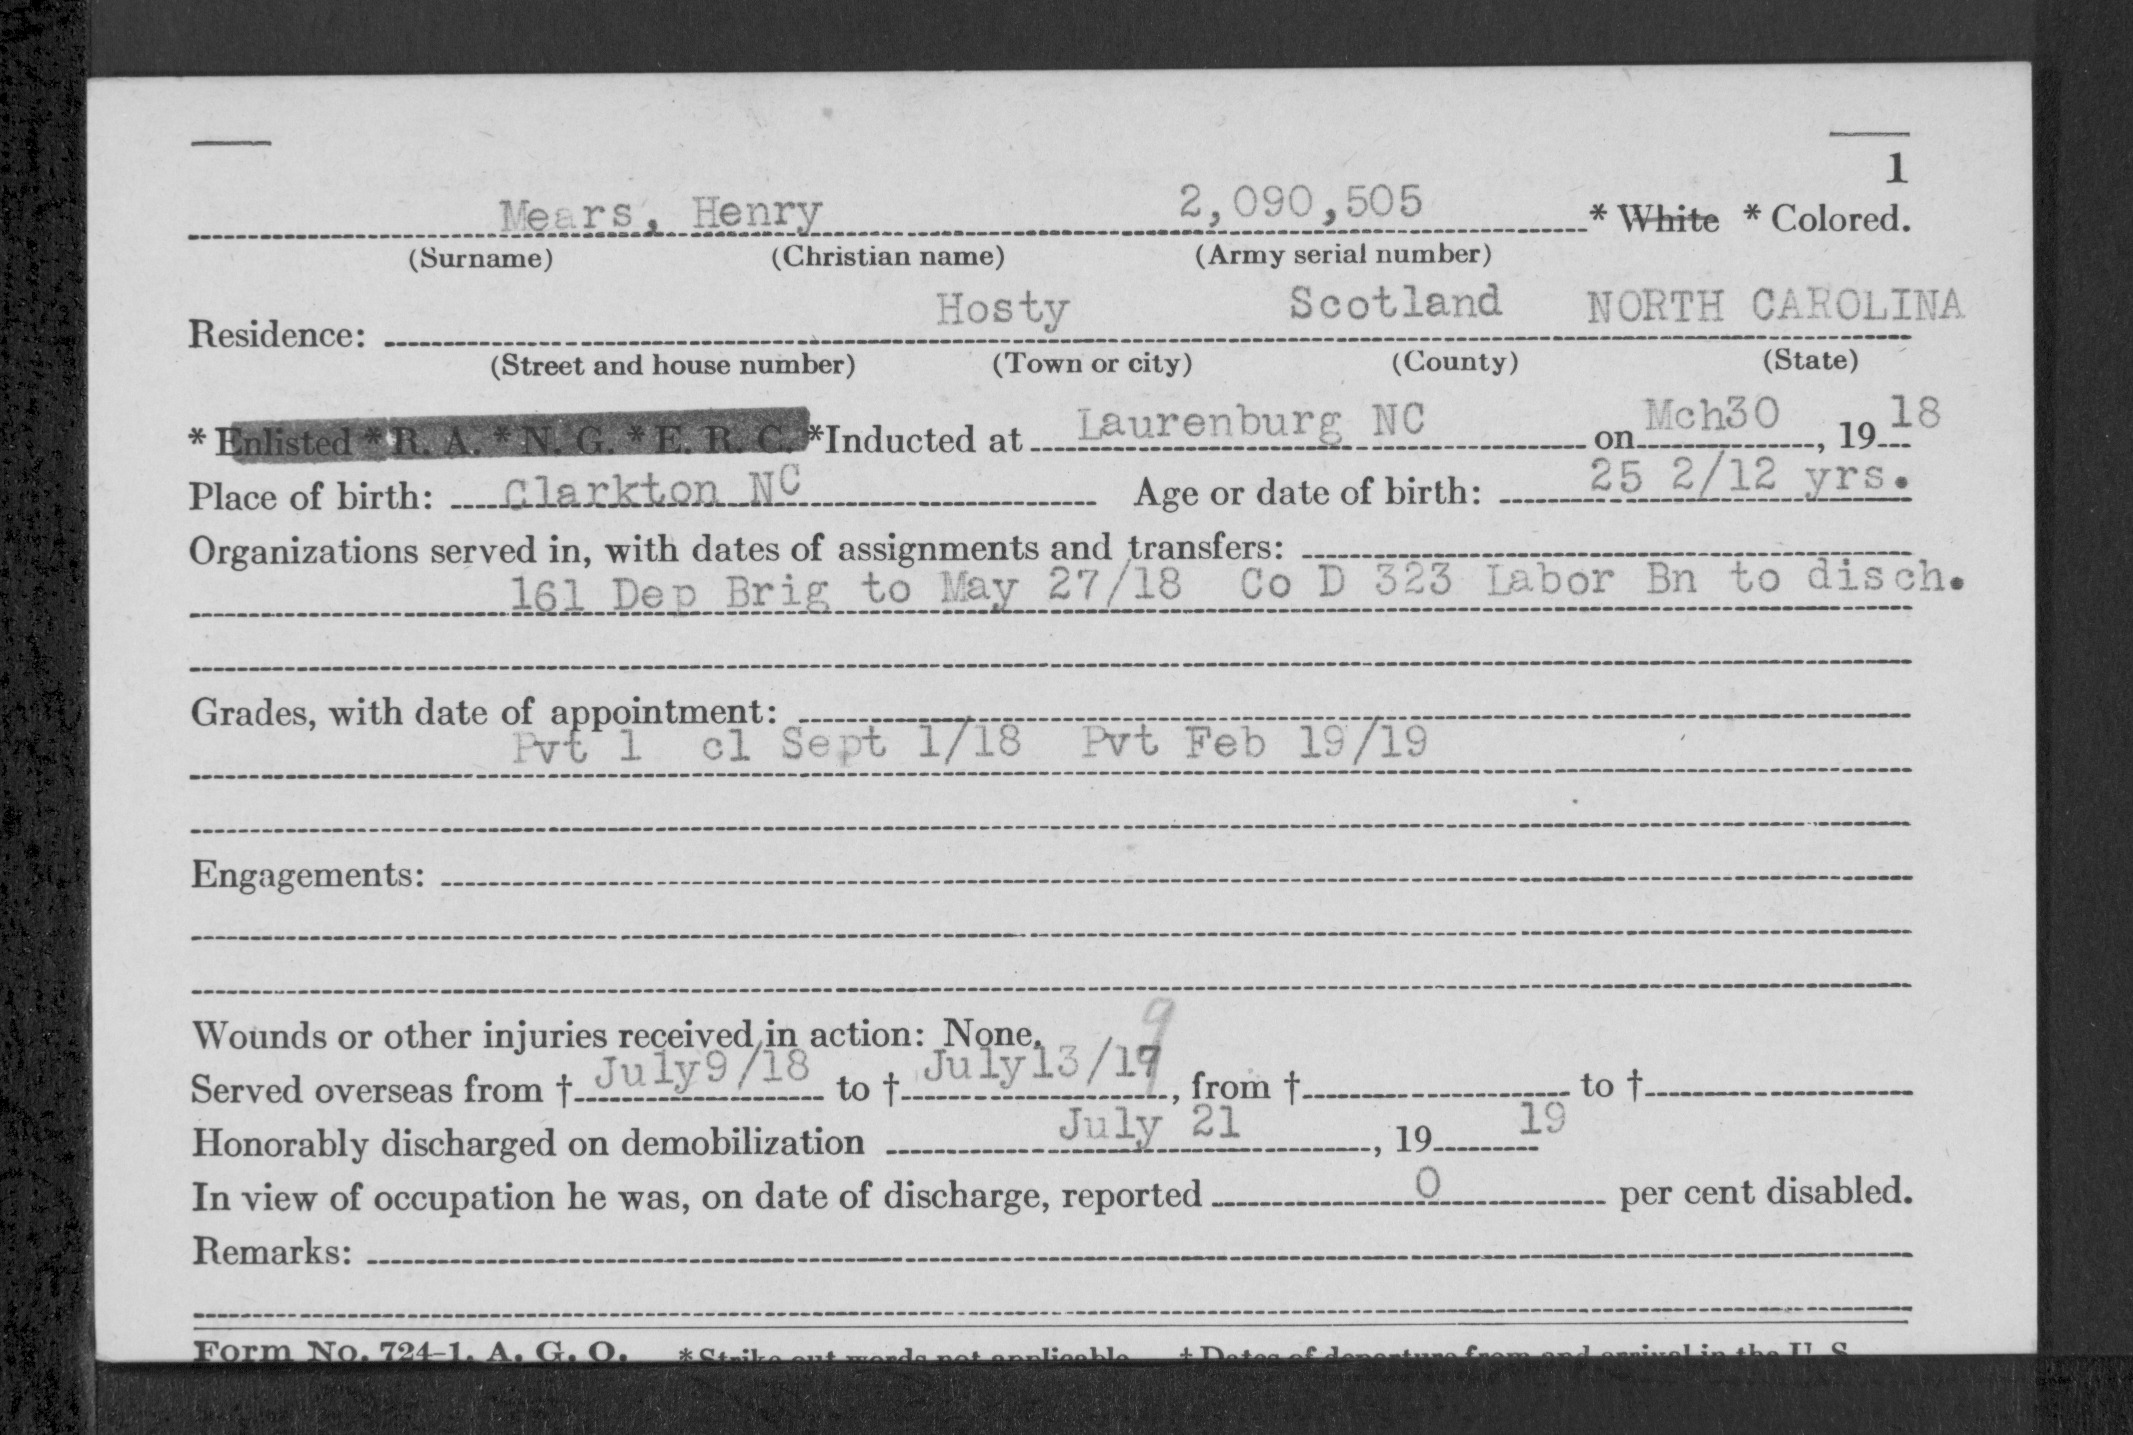 1
Mears, Henry 2,090,505 * White * Colored.
(Surname) (Christian name) (Army serial number)
Residence: Hosty Scotland NORTH CAROLINA
(Street and house number) (Town or city) (County) (State)
* Enlisted * R. A. * N. G. * E. R. C. *Inducted at Laurenburg NC on Mch30, 19 18
Place of birth: Clarkton NC Age or date of birth: 25 2/12 yrs.
Organizations served in, with dates of assignments and transfers:
161 Dep Brig to May 27/18 Co D 323 Labor Bn to disch.
Grades, with date of appointment:
Pvt 1 cl Sept 1/18 Pvt Feb 19/19
Engagements:
Wounds or other injuries received in action: None.
9
Served overseas from † July9/18 to † July13/19, from † to †
Honorably discharged on demobilization July 21, 19 19
In view of occupation he was, on date of discharge, reported 0 per cent disabled.
Remarks:
Form No. 724-1, A. G. O. *Strike out words not applicable. † Dates of departure from and arrival in the U. S.